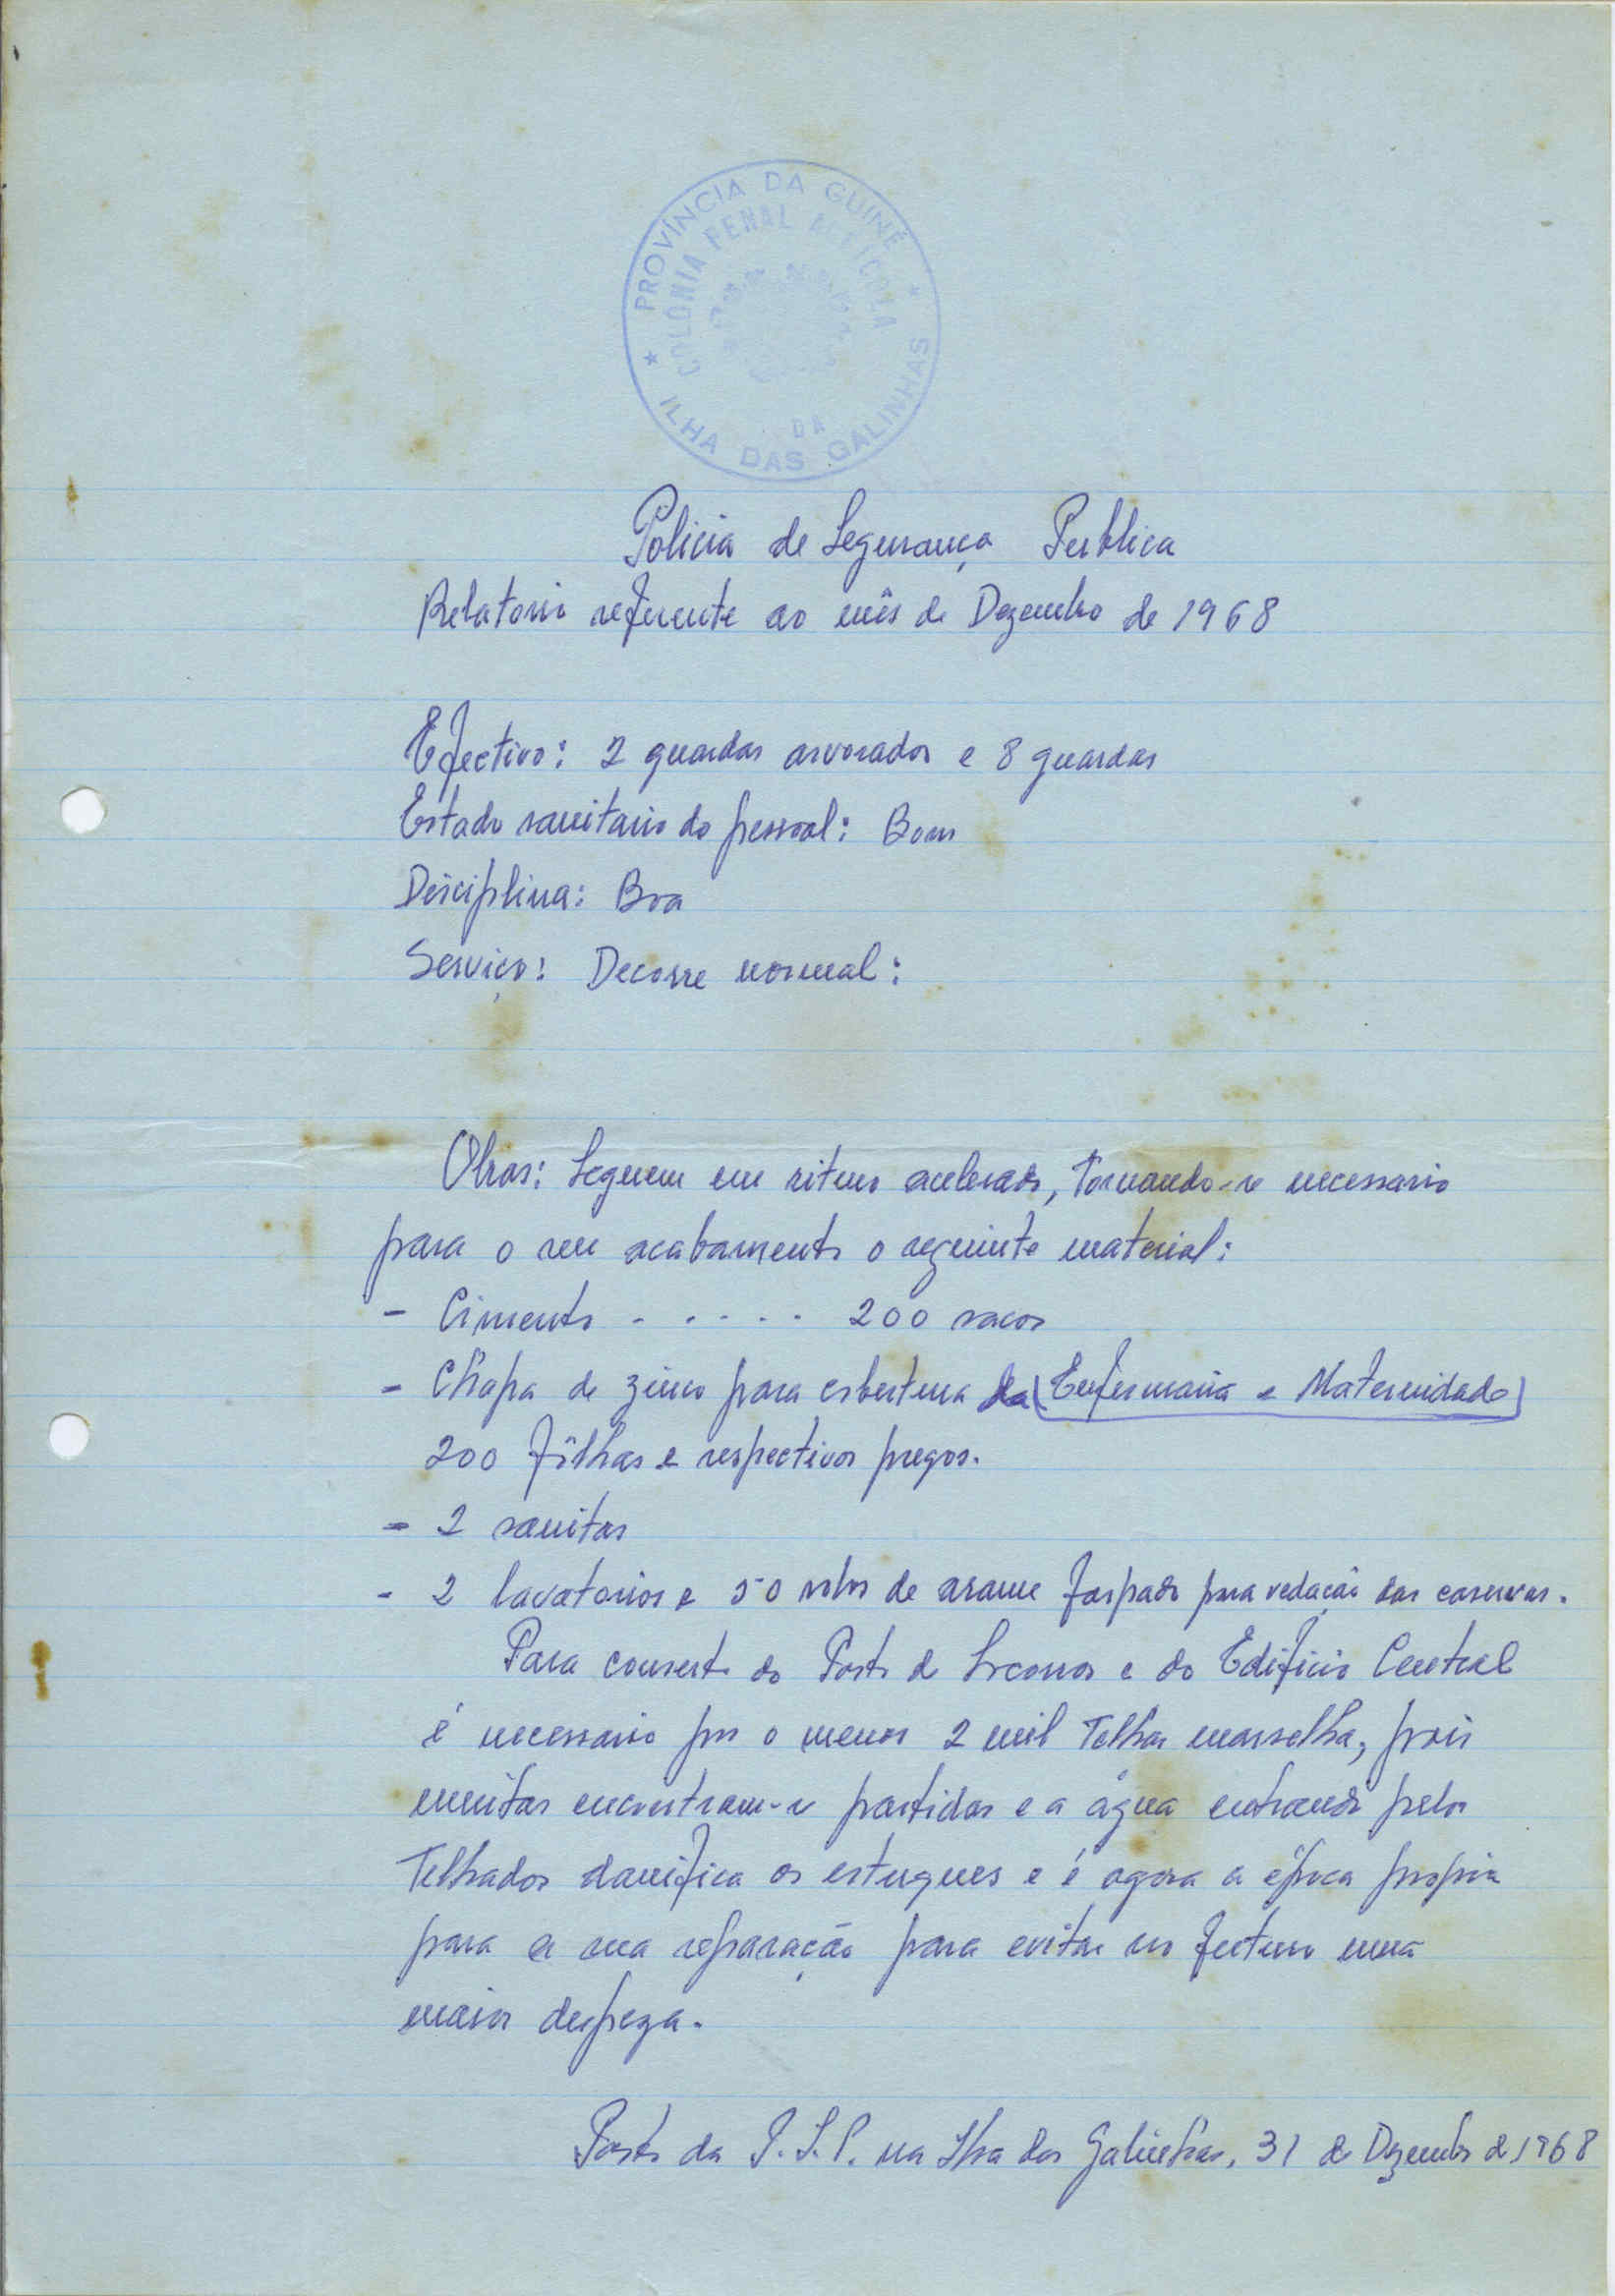 PROVÍNCIA DA GUINÉ
COLÓNIA PENAL AGRÍCOLA
DA
* ILHA DAS GALINHAS *
Policia de Segurança Publica
Relatorio referente ao mês de Dezembro de 1968
Efectivo: 2 guardas arvorados e 8 guardas
Estado sanitario do pessoal: Bom
Disciplina: Boa
Serviço: Decorre normal:
Obras: Seguem em ritmo acelerado, tornando-se necessario
para o seu acabamento o seguinte material:
- Cimento - . - . - . 200 sacos
- Chapa de zinco para cobertura da (Enfermaria e Maternidade)
200 fôlhas e respectivos pregos.
- 2 sanitas
- 2 lavatorios e 50 rolos de arame farpado para vedação das casernas.
Para conserto do Posto de Socorros e do Edificio Central
é necessario por o menos 2 mil telhas marselha, pois
muitas encontram-se partidas e a água entrando pelos
telhados danifica os estuques e é agora a época propria
para a sua reparação para evitar no futuro uma
maior despeza.
Posto da P.S.P. na Ilha das Galinhas, 31 de Dezembro de 1968